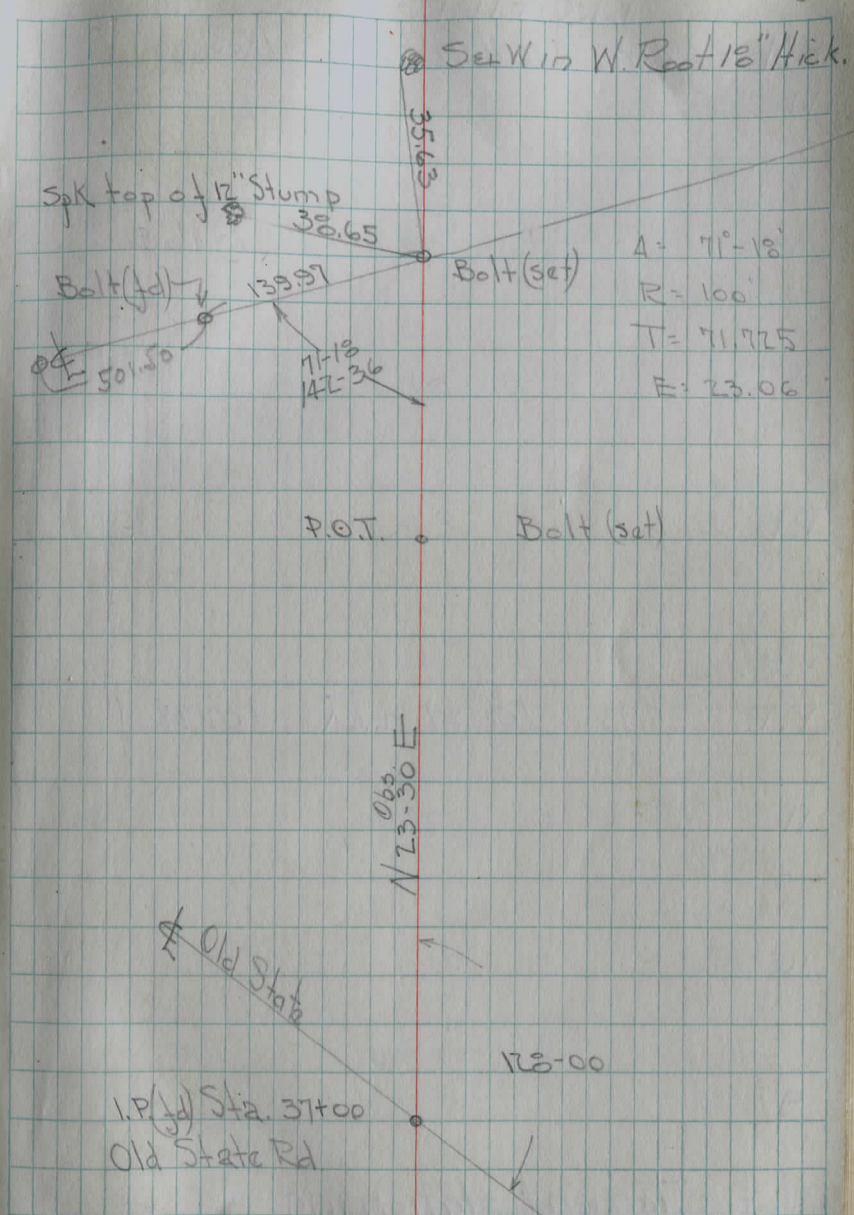 Set W in W. Root 18" Hick.
35.63
Spk top of 12" Stump
38.65
Bolt (fd)
139.97
Bolt (set)
Δ = 71°-18'
R = 100'
T = 71.725
E = 23.06
℄
501.50
71-18
142-36
P.O.T.
Bolt (set)
Obs.
N 23-30 E
℄ Old State
128-00
I.P. (fd) Sta. 37+00
Old State Rd